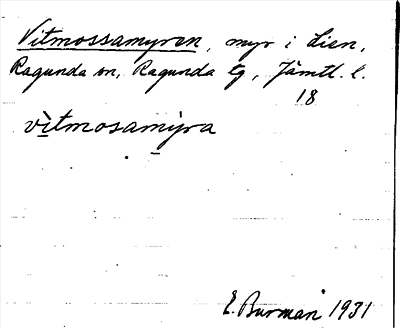 Vitmossamyren, myr i Lien,
Ragunda sn, Ragunda tg, Jämtl. l.
18
vitmosamyra
E. Burman 1931